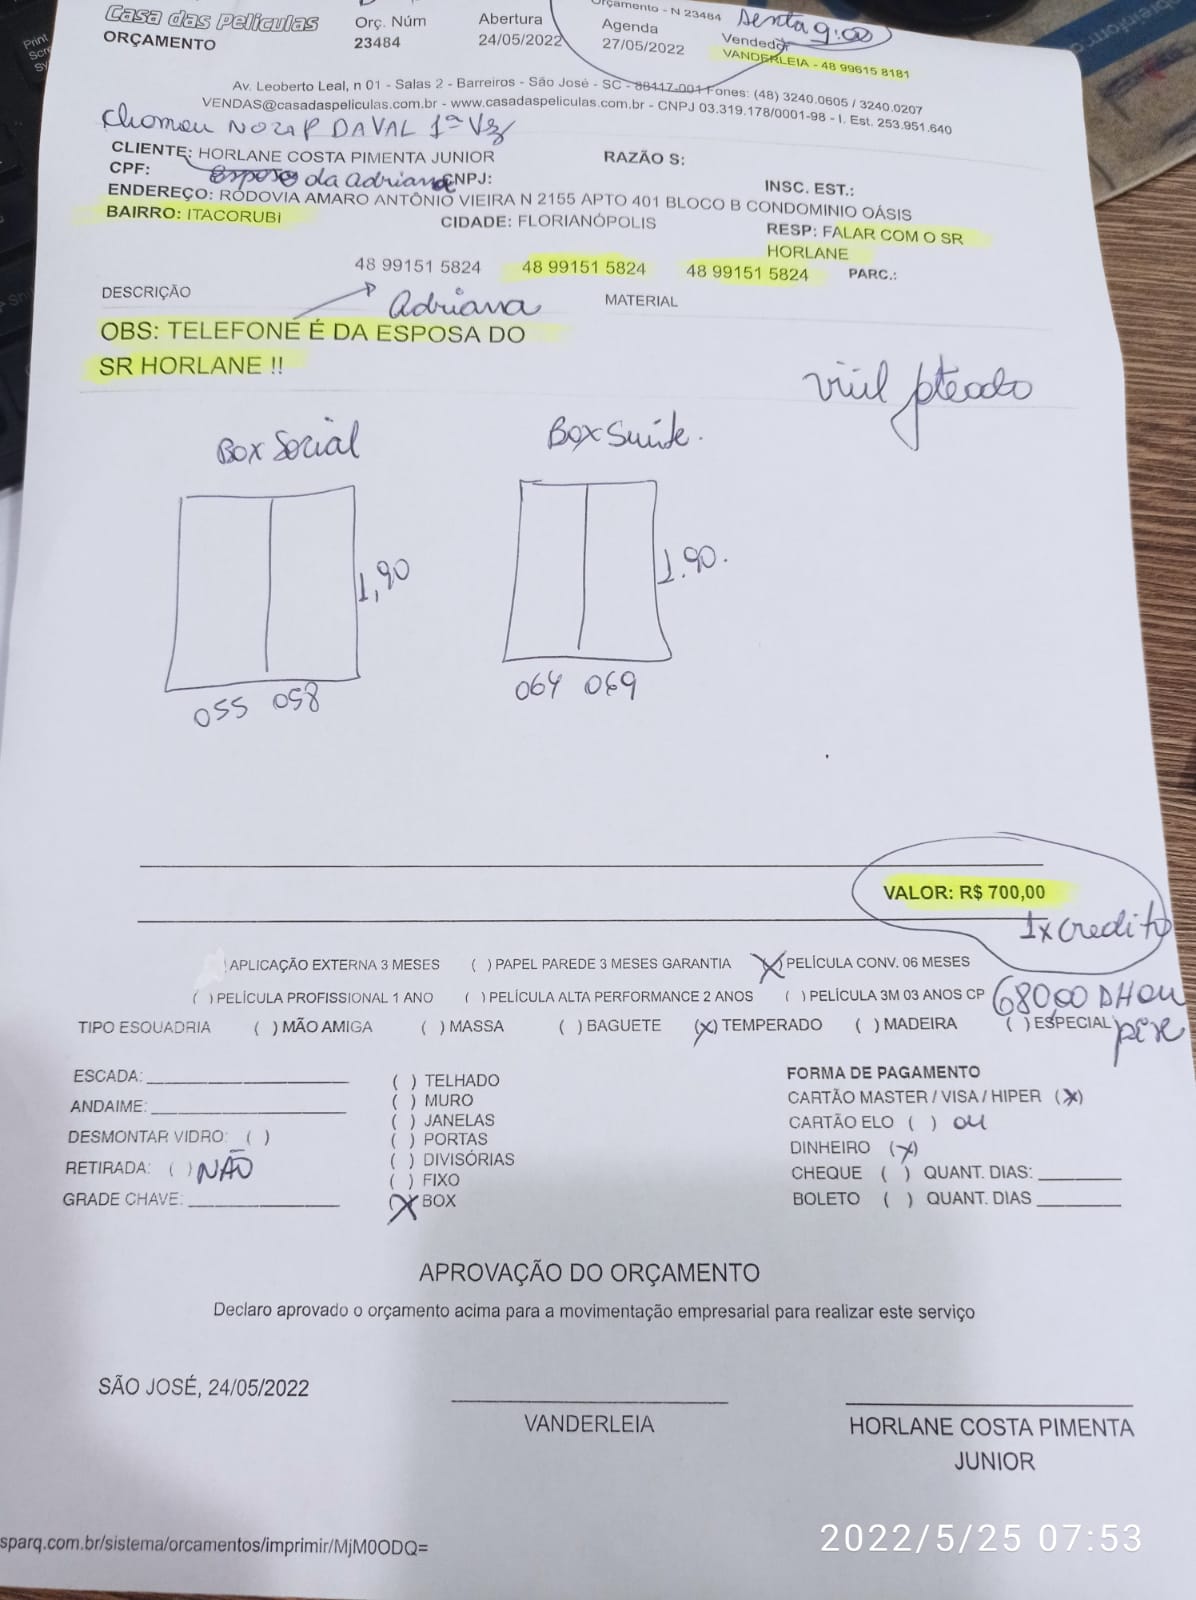 Casa das Películas
ORÇAMENTO
Orç. Núm
23484
Abertura
24/05/2022
Orçamento - N 23484
Agenda
27/05/2022
Senta 9:00
Vendedor
VANDERLEIA - 48 99615 8181
Av. Leoberto Leal, n 01 - Salas 2 - Barreiros - São José - SC - 88117-001 Fones: (48) 3240.0605 / 3240.0207
VENDAS@casadaspeliculas.com.br - www.casadaspeliculas.com.br - CNPJ 03.319.178/0001-98 - I. Est. 253.951.640
Chamou NO ZAP DA VAL 1ª Vez
CLIENTE: HORLANE COSTA PIMENTA JUNIOR
RAZÃO S:
CPF:
esposo da Adriana
CNPJ:
INSC. EST.:
ENDEREÇO: RODOVIA AMARO ANTÔNIO VIEIRA N 2155 APTO 401 BLOCO B CONDOMINIO OÁSIS
BAIRRO: ITACORUBI
CIDADE: FLORIANÓPOLIS
RESP: FALAR COM O SR
HORLANE
48 99151 5824
48 99151 5824
48 99151 5824
PARC.:
DESCRIÇÃO
Adriana
MATERIAL
OBS: TELEFONE É DA ESPOSA DO
SR HORLANE !!
pteado
Box Social
Box Suite.
1,90
1.90.
055 058
064 069
VALOR: R$ 700,00
1x credito
APLICAÇÃO EXTERNA 3 MESES
( ) PAPEL PAREDE 3 MESES GARANTIA
(X) PELÍCULA CONV. 06 MESES
( ) PELÍCULA PROFISSIONAL 1 ANO
( ) PELÍCULA ALTA PERFORMANCE 2 ANOS
( ) PELÍCULA 3M 03 ANOS CP
680,00 DH ou
pix
TIPO ESQUADRIA
( ) MÃO AMIGA
( ) MASSA
( ) BAGUETE
(x) TEMPERADO
( ) MADEIRA
( ) ESPECIAL
ESCADA:
ANDAIME:
DESMONTAR VIDRO: ( )
RETIRADA: ( ) NÃO
GRADE CHAVE:
( ) TELHADO
( ) MURO
( ) JANELAS
( ) PORTAS
( ) DIVISÓRIAS
( ) FIXO
(X) BOX
FORMA DE PAGAMENTO
CARTÃO MASTER / VISA / HIPER (x)
CARTÃO ELO ( ) ou
DINHEIRO (x)
CHEQUE ( ) QUANT. DIAS:
BOLETO ( ) QUANT. DIAS
APROVAÇÃO DO ORÇAMENTO
Declaro aprovado o orçamento acima para a movimentação empresarial para realizar este serviço
SÃO JOSÉ, 24/05/2022
VANDERLEIA
HORLANE COSTA PIMENTA
JUNIOR
sparq.com.br/sistema/orcamentos/imprimir/MjM0ODQ=
2022/5/25 07:53